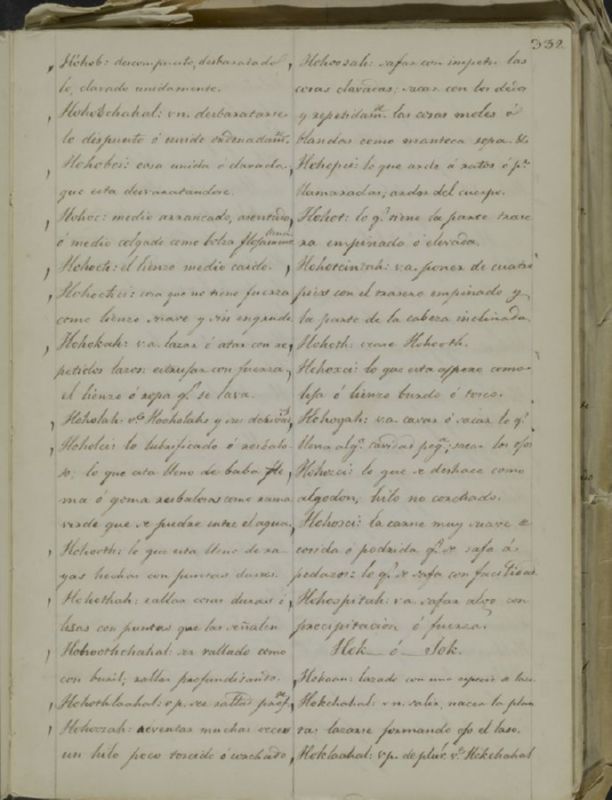 332
Hohob: descompuesto, desbaratado
lo, clavado unidamente.
Hohobchahal: vn. desbaratarse
lo dispuesto ó unido ordenadamte.
Hohobci: cosa unida ó clavada
que esta desvaratandose.
Hohoc: medio arrancado,
ó medio colgado como bolsa
Hohoch: el lienzo medio caido.
Hohochci: cosa que no tiene fuerza
como lienzo suave y sin engrudo
Hohokah: v.a. lazar ó atar con re
petidos lazos: estrujar con fuerza
el lienzo ó ropa q.e se lava.
Hoholah: v.e Hooholah y sus
Hoholci: lo lubrificado ó resbalo
so; lo que esta lleno de baba fle
ma ó goma resbalosa como rama
verde que se pudre entre el agua.
Hohooth: lo que esta lleno de ra-
yas hechas con puntas duras.
Hohothah: rallar cosas duras ó
lisas con puntas que las señalen
Hohoothchahal: ser rallado como
con buril, rallar profundizando.
Hohothlaahal: v.p. ser rallado
Hohozah: reventar muchas veces
un hilo poco torcido ó corchado
Hohozah: safar con impetu las
cosas clavadas; sacar con los dedos
y repetidamte. las cosas moles ó
blandas como manteca sopa &.
Hohopci: lo que arde á ratos ó p.r
llamaradas; ardor del cuerpo.
Hohot: lo q.e tiene la parte trase
ra empinada ó elevada.
Hohotcinzah: v.a. poner de cuatro
pies con el trasero empinado y
la parte de la cabeza inclinada.
Hohoth: vease Hohooth.
lo que esta aspero como
ó lienzo burdo ó tosco.
Hohoyah: v.a. cavar ó sacar lo q.e
llena alg.a cavidad peq.a; sacar los ojos
Hohozci: lo que se deshace como
algodon, hilo no corchado.
la carne muy suave
cosida ó podrida q.e se safa á
pedazos: lo q.e se safa con facilidad.
Hohozpitah: v.a. safar algo con
precipitacion ó fuerza.
Hok ó Jok.
Hokaan: lazado con una especie de lazo
Hokchahal: v.n. salir, nacer la plan
ta; lazarse formando ojo el lazo.
Hoklaahal: v.p. de plur. v.e Hokchahal